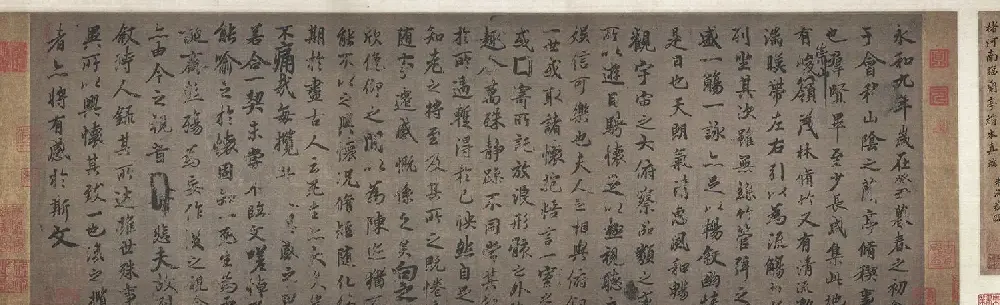 永和九年歲在癸丑暮春之初
于會稽山陰之蘭亭脩稧事
也群賢畢至少長咸集此地
有崇山峻領茂林脩竹又有清流
湍暎帶左右引以為流觴
列坐其次雖無絲竹管弦
盛一觴一詠亦足以暢敘幽情
是日也天朗氣清惠風和暢
觀宇宙之大俯察品類之
所以遊目騁懷足以極視聽之
娛信可樂也夫人之相與俯仰
一世或取諸懷抱悟言一室
或因寄所託放浪形骸之外
趣舍萬殊靜躁不同當其
於所遇蹔得於己怏然自足
知老之將至及其所之既惓
隨事遷感慨係之矣向之
欣俛仰之間以為陳迹猶
能不以之興懷況脩短隨化
期於盡古人云死生亦大矣
不痛哉每攬昔人興感之
若合一契未嘗不臨文嗟悼
能喻之於懷固知一死生為
誕齊彭殤為妄作後之視今
亦由今之視昔悲夫故列
敘時人錄其所述雖世殊事
異所以興懷其致一也後之攬
者亦將有感於斯文
褚河南臨蘭亭絹本真蹟